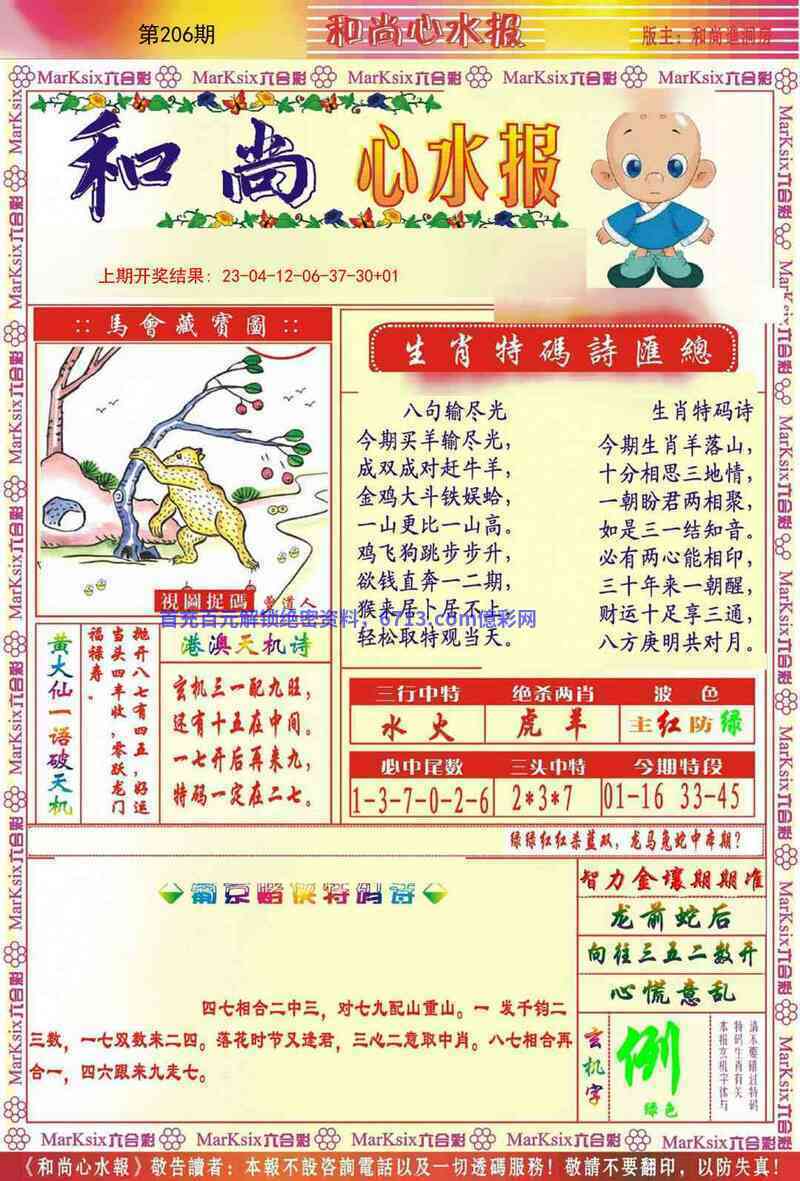 第206期
和尚心水报
版主：和尚進洞房
MarKsix六合彩 MarKsix六合彩 MarKsix六合彩 MarKsix六合彩 MarKsix六合彩
和尚 心水报
上期开奖结果：23-04-12-06-37-30+01
:: 馬會藏寶圖 ::
視圖捉碼
曾道人
生肖特碼詩匯總
八句输尽光
今期买羊输尽光，
成双成对赶牛羊，
金鸡大斗铁蜈蛤，
一山更比一山高。
鸡飞狗跳步步升，
欲钱直奔一二期，
猴来居卜居不上，
轻松取特观当天。
生肖特码诗
今期生肖羊落山，
十分相思三地情，
一朝盼君两相聚，
如是三一结知音。
必有两心能相印，
三十年来一朝醒，
财运十足享三通，
八方庚明共对月。
首充百元解锁绝密资料；6713.com億彩网
黄大仙一语破天机
抛开八七有四五，好运
当头四丰收，零跃龙门
福禄寿。
港澳天机诗
玄机三一配九旺，
还有十五在中间。
一七开后再来九，
特码一定在二七。
三行中特 绝杀两肖 波 色
水 火 虎 羊 主红防绿
必中尾数 三头中特 今期特段
1-3-7-0-2-6 2*3*7 01-16 33-45
绿绿红红杀蓝双，龙马兔蛇中本期？
葡京赌侠特码诗
四七相合二中三，对七九配山重山。一 发千钧二
三数，一七双数来二四。落花时节又逢君，三心二意取中肖。八七相合再
合一，四六跟来九走七。
智力金讓期期准
龙前蛇后
向往三五二数开
心慌意乱
玄机字
例
绿色
请不要错过特码
特码生肖有关
本报玄机字体与
MarKsix六合彩 MarKsix六合彩 MarKsix六合彩 MarKsix六合彩 MarKsix六合彩
《和尚心水報》敬告讀者：本報不設咨詢電話以及一切透碼服務！敬請不要翻印，以防失真！